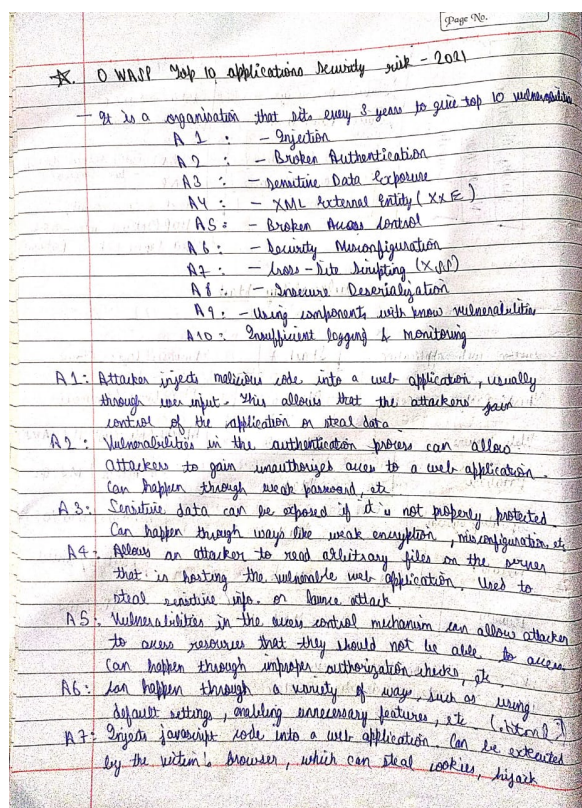 Page No.
☆. OWASP Top 10 applications security risk - 2021
- It is a organisation that sits every 3 years to give top 10 vulnerabilities
A1 : - Injection
A2 : - Broken Authentication
A3 : - Sensitive Data Exposure
A4 : - XML External Entity (XXE)
A5 : - Broken Access Control
A6 : - Security Misconfiguration
A7 : - Cross-Site Scripting (XSS)
A8 : - Insecure Deserialization
A9 : - Using components with know vulnerabilities
A10 : Insufficient logging & monitoring
A1 : Attacker injects malicious code into a web application, usually
through user input. This allows that the attackers gain
control of the application or steal data
A2 : Vulnerabilities in the authentication process can allow
attackers to gain unauthorizes access to a web application.
Can happen through weak password, etc
A3 : Sensitive data can be exposed if it is not properly protected.
Can happen through ways like weak encryption, misconfiguration, etc
A4 : Allows an attacker to read arbitrary files on the server
that is hosting the vulnerable web application. Used to
steal sensitive info. or launce attack
A5 : Vulnerabilities in the access control mechanism can allow attacker
to access resources that they should not be able to access
Can happen through improper authorization checks, etc
A6 : Can happen through a variety of ways, such as using
default settings, enabling unnecessary features, etc
A7 : Injects javascript code into a web application. Can be executed
by the victim's browser, which can steal cookies, hijack